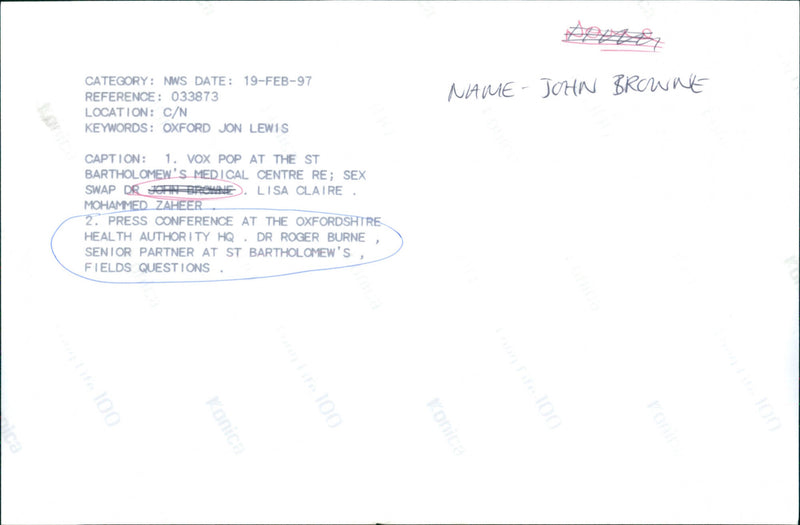 NAME - JOHN BROWNE
CATEGORY: NWS DATE: 19-FEB-97
REFERENCE: 033873
LOCATION: C/N
KEYWORDS: OXFORD JON LEWIS
CAPTION: 1. VOX POP AT THE ST
BARTHOLOMEW'S MEDICAL CENTRE RE; SEX
SWAP DR JOHN BROWNE . LISA CLAIRE .
MOHAMMED ZAHEER .
2. PRESS CONFERENCE AT THE OXFORDSHIRE
HEALTH AUTHORITY HQ . DR ROGER BURNE ,
SENIOR PARTNER AT ST BARTHOLOMEW'S ,
FIELDS QUESTIONS .
Long Life 100
Long Life 100
Long Life 100
Konica
Konica
Konica
Konica